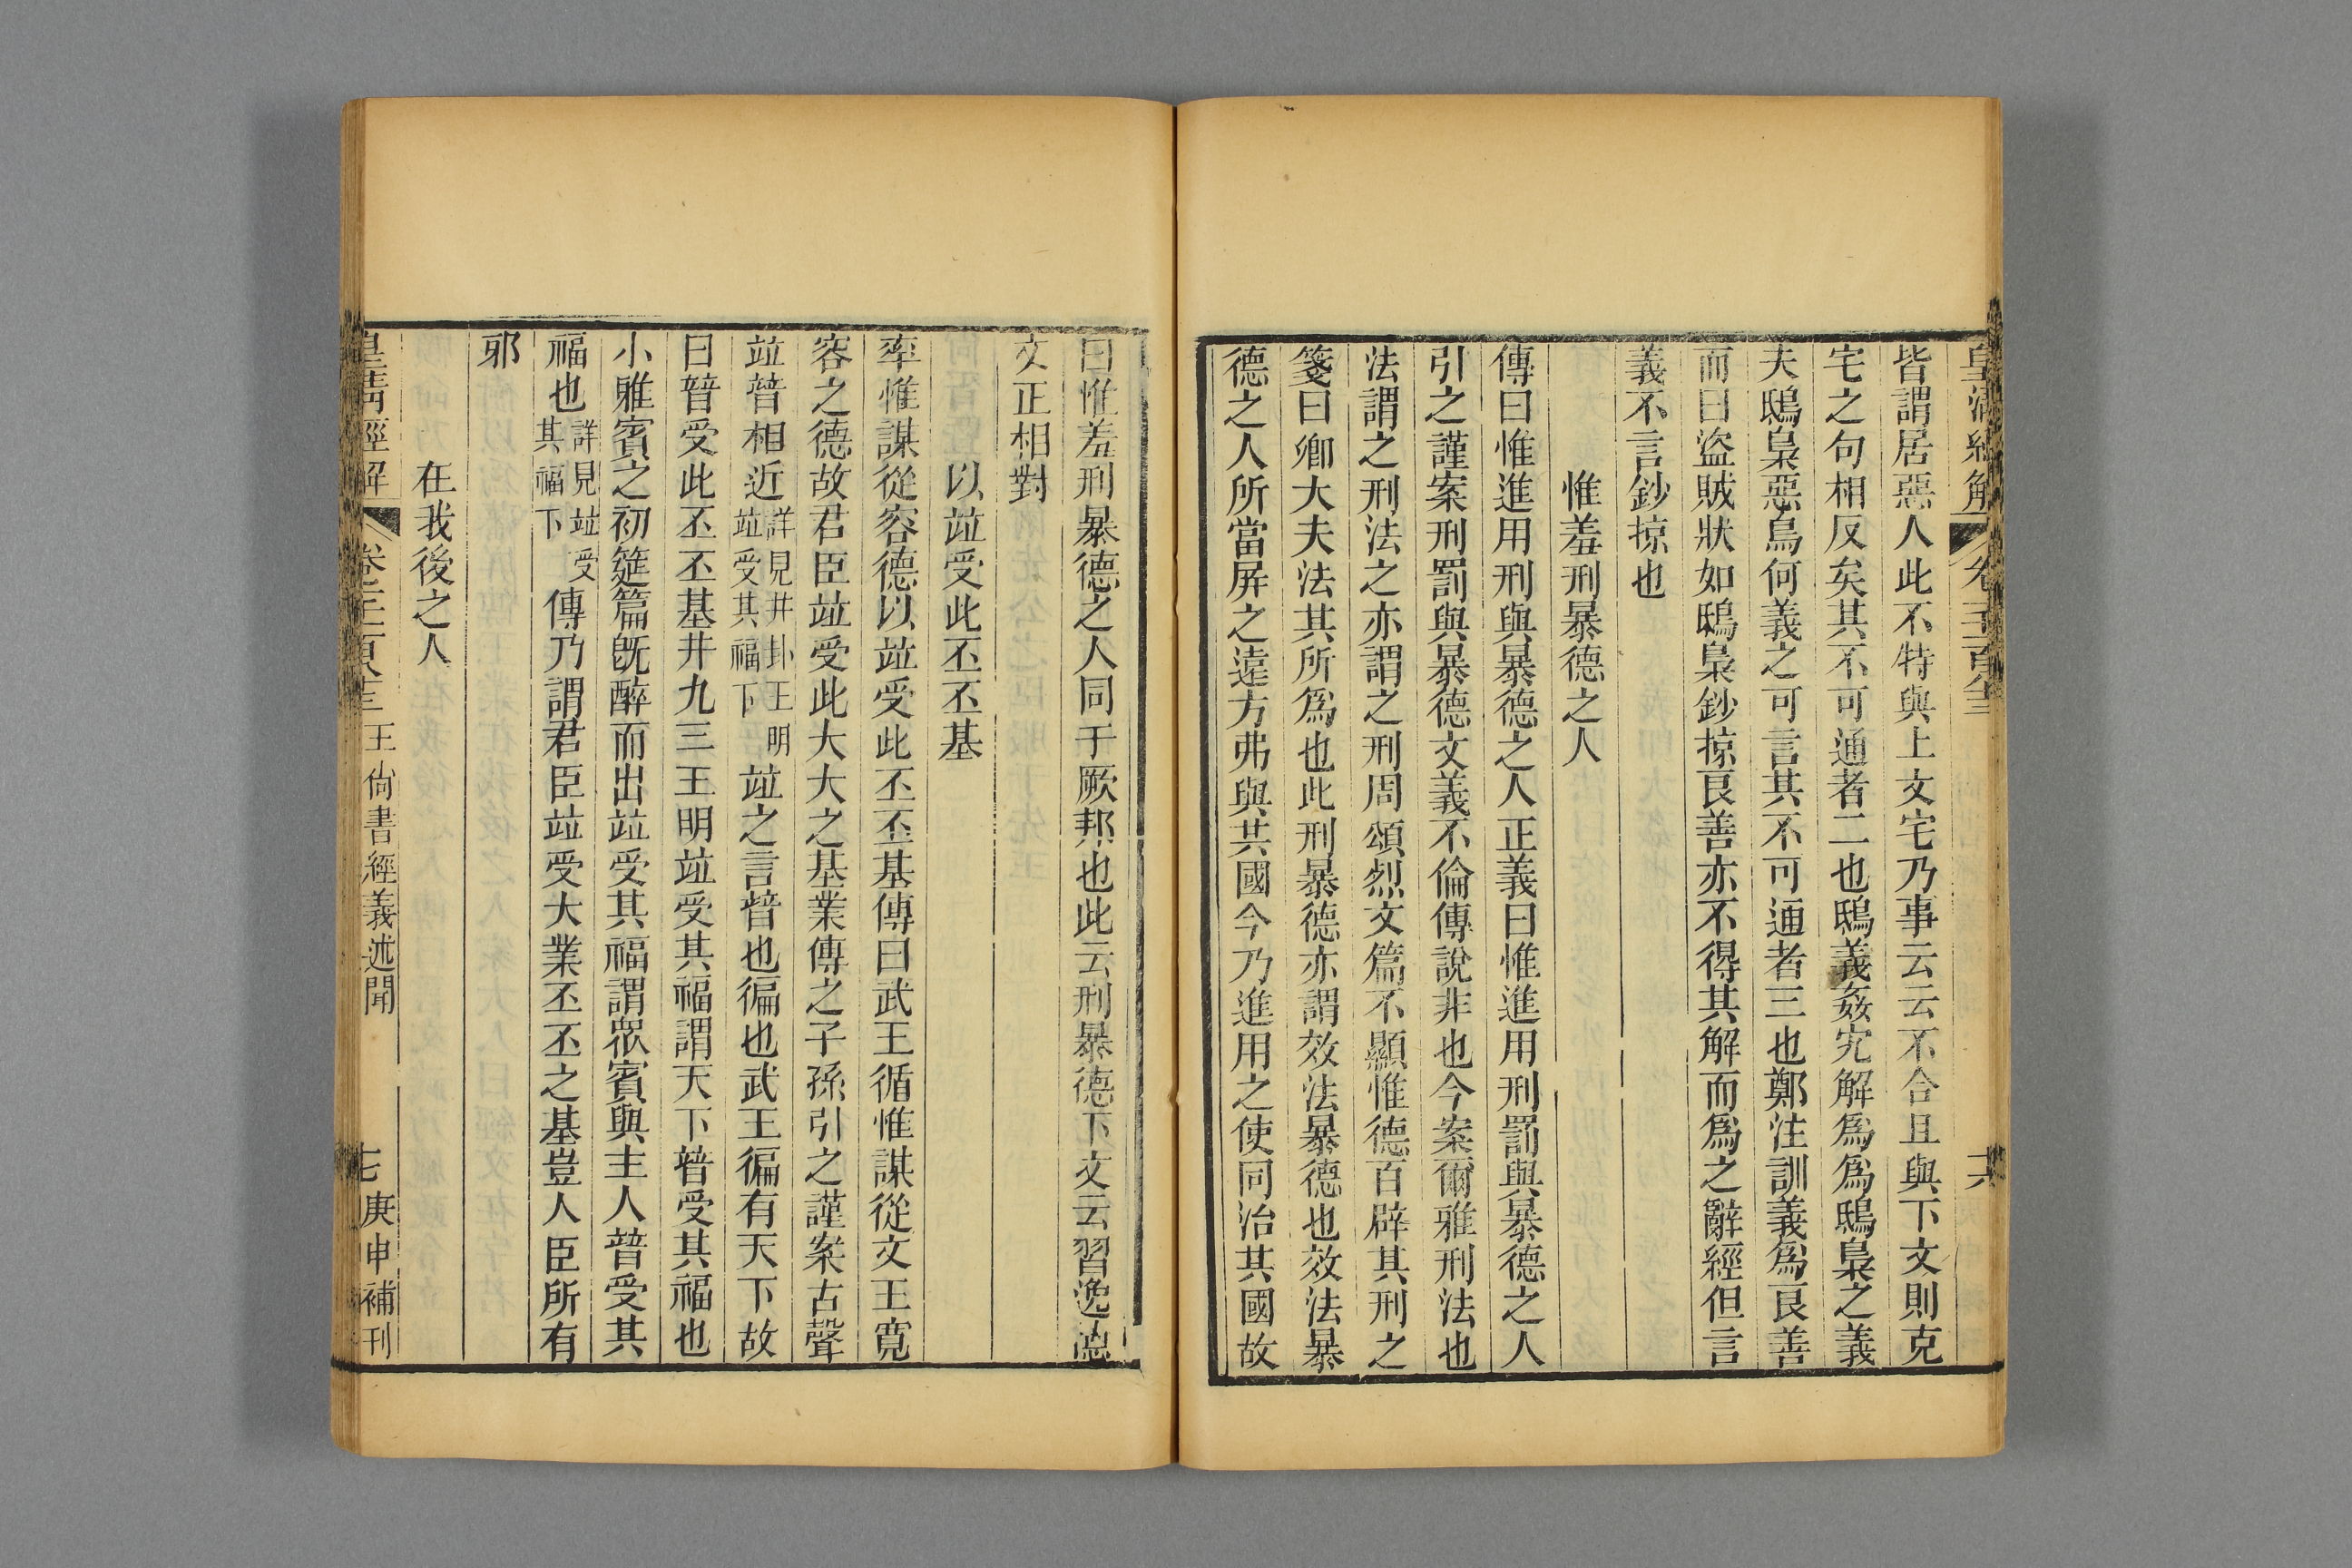 皇清經解
皆謂居惡人此不特與上文宅乃事云云不合且與下文則克
宅之句相反矣其不可通者二也鴟義姦宄解爲爲鴟梟之義
夫鴟梟惡鳥何義之可言其不可通者三也鄭注訓義爲良善
而曰盜賊狀如鴟梟鈔掠良善亦不得其解而爲之辭經但言
義不言鈔掠也
惟羞刑暴德之人
傳曰惟進用刑與暴德之人正義曰惟進用刑罰與暴德之人
引之謹案刑罰與暴德文義不倫傳說非也今案爾雅刑法也
法謂之刑法之亦謂之刑周頌烈文篇不顯惟德百辟其刑之
箋曰卿大夫法其所爲也此刑暴德亦謂效法暴德也效法暴
德之人所當屏之遠方弗與共國今乃進用之使同治其國故
曰惟羞刑暴德之人同于厥邦也此云刑暴德下文云習逸德
文正相對
以竝受此丕丕基
率惟謀從容德以竝受此丕丕基傳曰武王循惟謀從文王寛
容之德故君臣竝受此大大之基業傳之子孫引之謹案古聲
竝普相近詳見井卦王明竝受其福下竝之言普也徧也武王徧有天下故
曰普受此丕丕基井九三王明竝受其福謂天下普受其福也
小雅賓之初筵篇旣醉而出竝受其福謂衆賓與主人普受其
福也詳見竝受其福下傳乃謂君臣竝受大業丕丕之基豈人臣所有
邪
在我後之人
皇清經解 王尙書經義述聞 七 庚申補刊